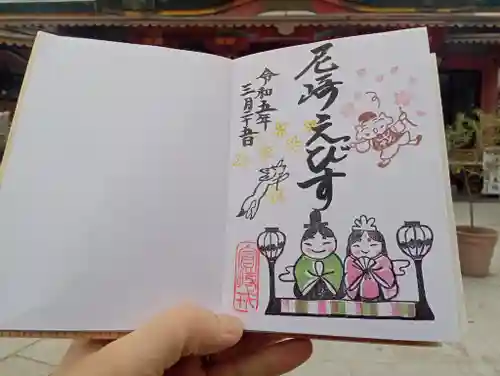 尼崎えびす
令和五年
三月二十五日